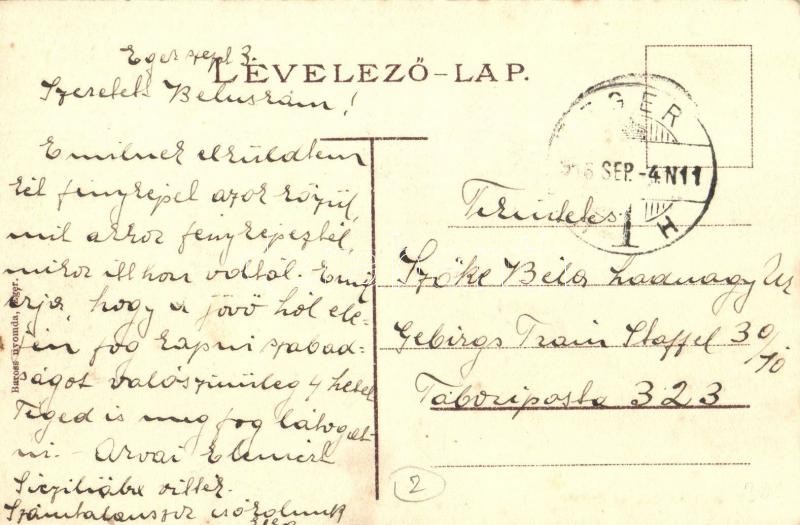 Eger szept 3.
LEVELEZŐ-LAP.
Szeretett Béluskám!
Emilnek elküldtem
két fényképet azok közül,
mit akkor fényképeztél,
mikor itthon voltál. Emil
írja, hogy a jövő hó ele-
jén fog kapni szabad-
ságot valószinüleg 4 hetet
Tiged is meg fog látogat-
ni. - Arvai Elemért
vitték.
Számtalanszor csókolunk
Baross nyomda, Eger.
EGER
SEP. -4 N11
H
Tekintetes
Szőke Béla hadnagy Úr
Gebirgs Train Staffel 30/10
Táboriposta 323
2